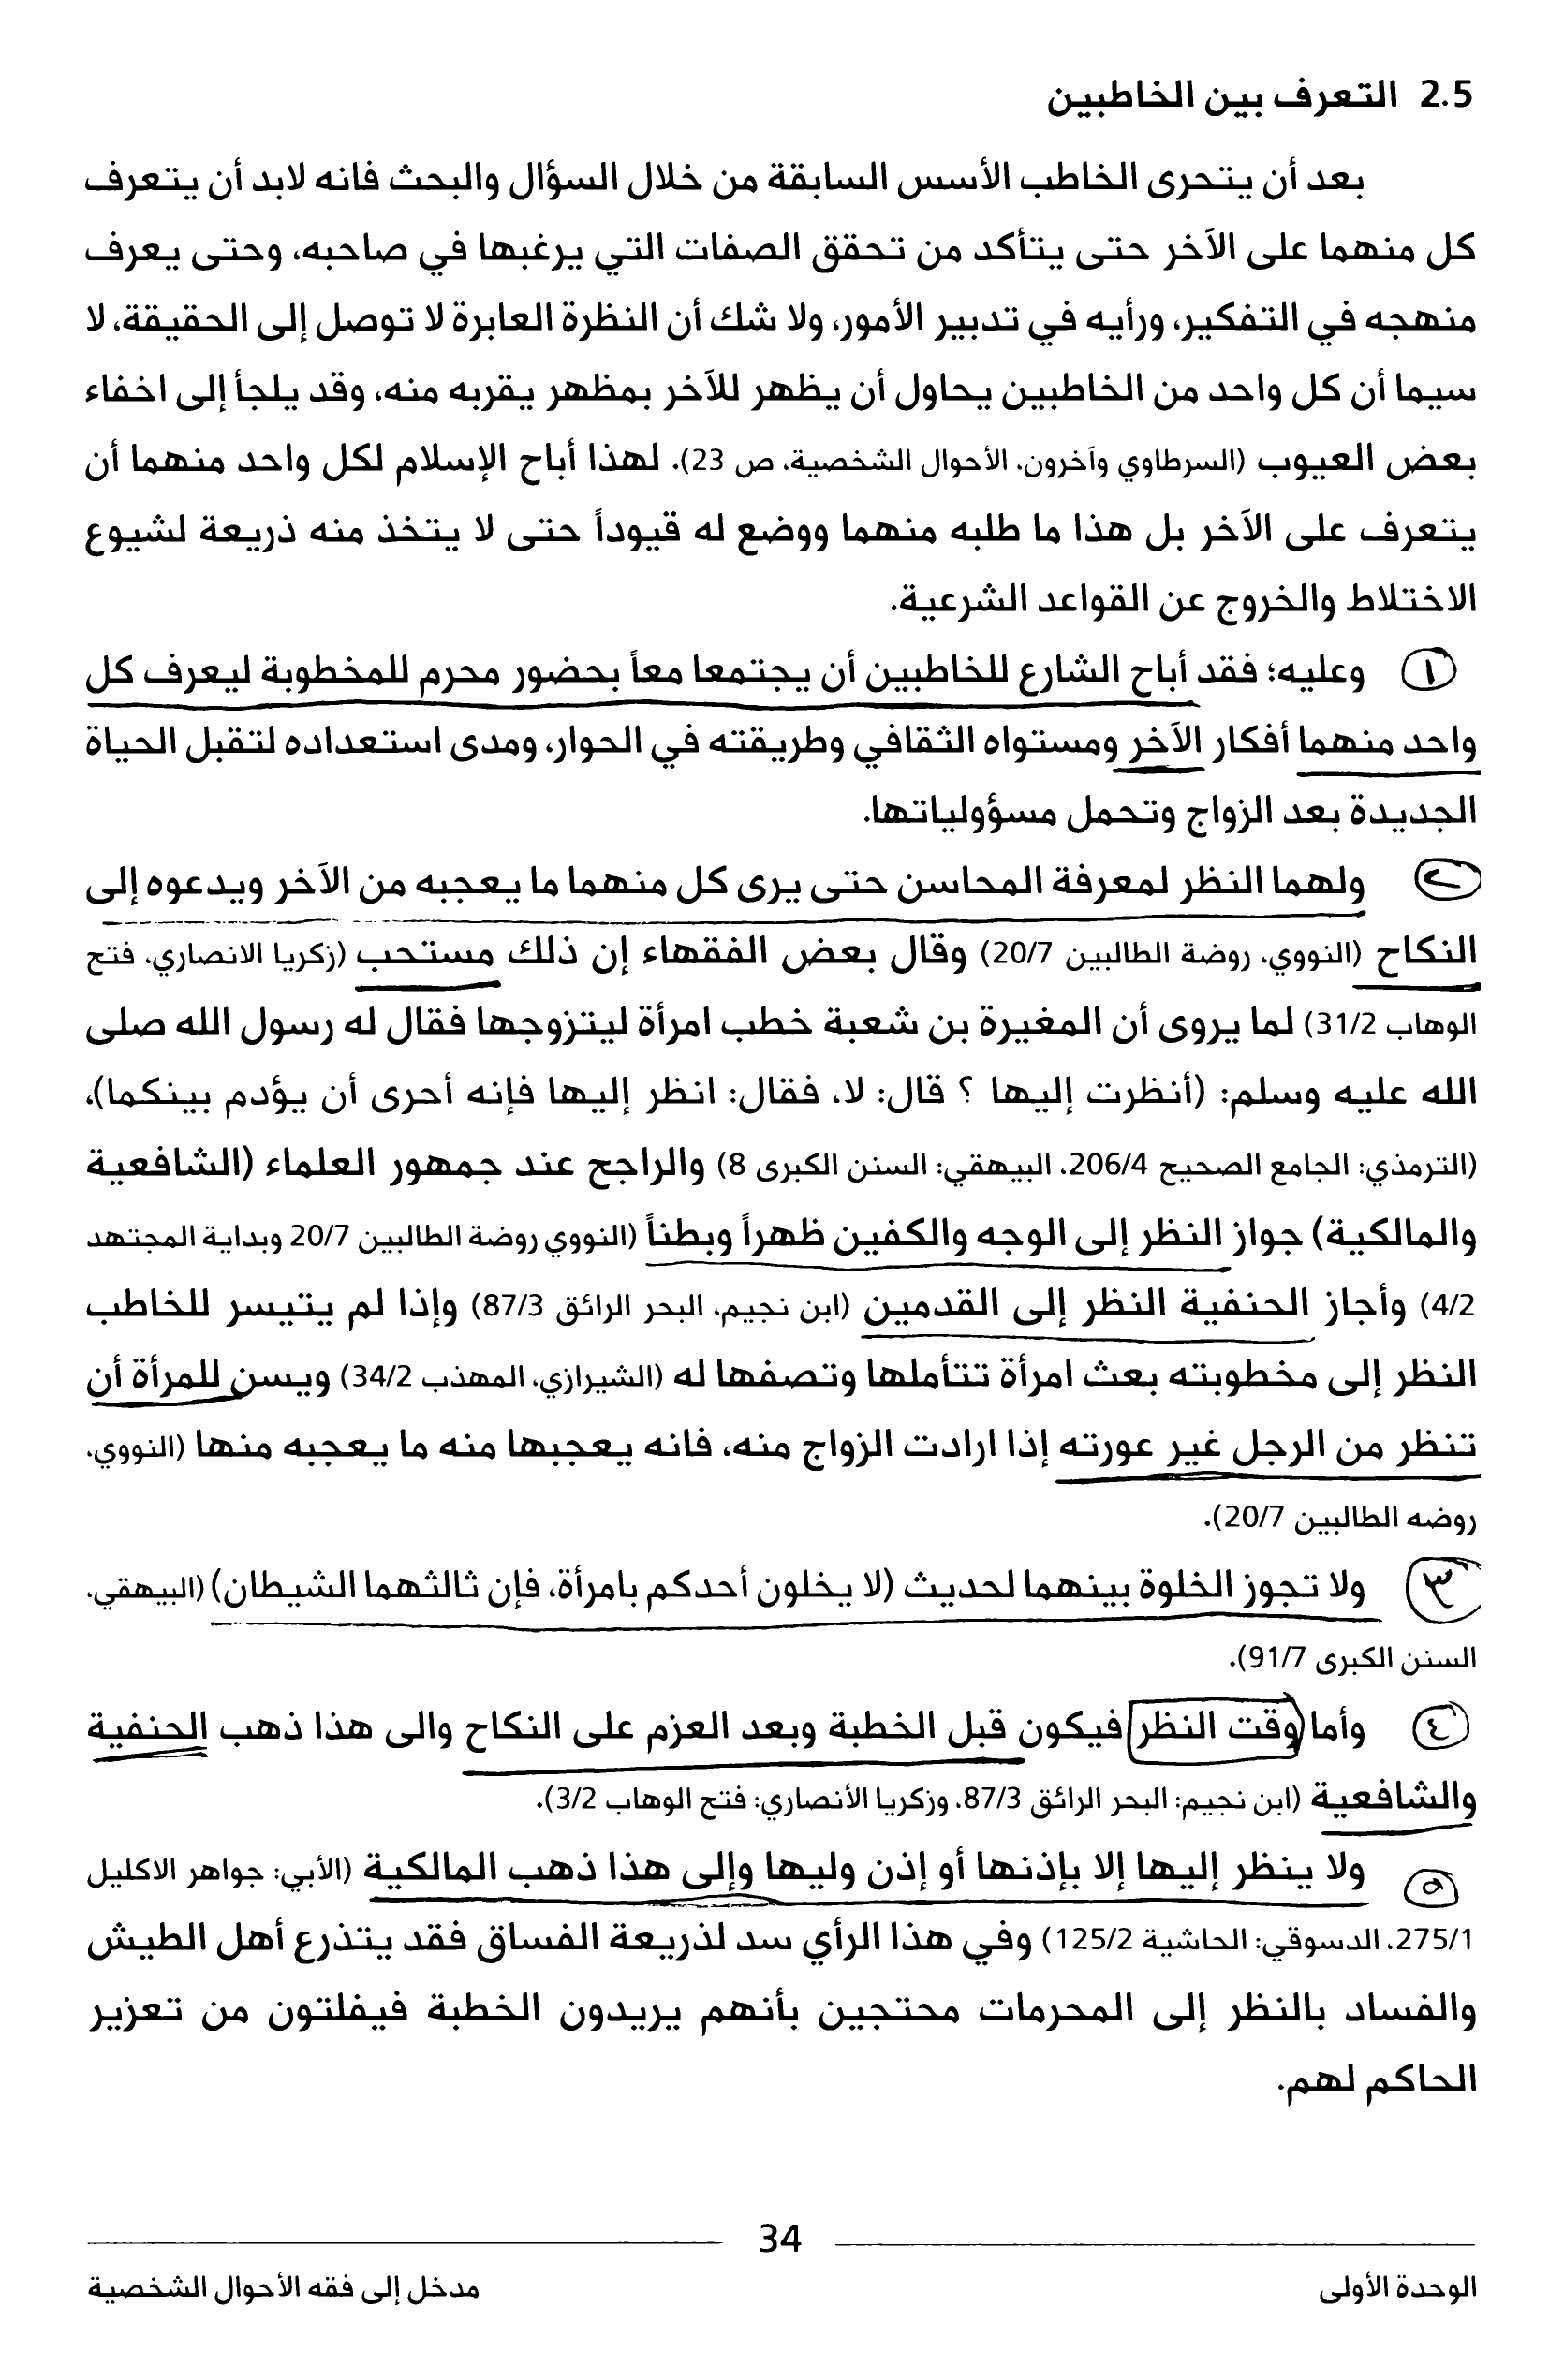 2.5 التعرف بين الخاطبين
بعد أن يتحرى الخاطب الأسس السابقة من خلال السؤال والبحث فانه لابد أن يتعرف
كل منهما على الآخر حتى يتأكد من تحقق الصفات التي يرغبها في صاحبه، وحتى يعرف
منهجه في التفكير، ورأيه في تدبير الأمور، ولا شك أن النظرة العابرة لا توصل إلى الحقيقة، لا
سيما أن كل واحد من الخاطبين يحاول أن يظهر للآخر بمظهر يقربه منه، وقد يلجأ إلى اخفاء
بعض العيوب (السرطاوي وآخرون، الأحوال الشخصية، ص 23). لهذا أباح الإسلام لكل واحد منهما أن
يتعرف على الآخر بل هذا ما طلبه منهما ووضع له قيوداً حتى لا يتخذ منه ذريعة لشيوع
الاختلاط والخروج عن القواعد الشرعية.
١ وعليه؛ فقد أباح الشارع للخاطبين أن يجتمعا معاً بحضور محرم للمخطوبة ليعرف كل
واحد منهما أفكار الآخر ومستواه الثقافي وطريقته في الحوار، ومدى استعداده لتقبل الحياة
الجديدة بعد الزواج وتحمل مسؤولياتها.
٢ ولهما النظر لمعرفة المحاسن حتى يرى كل منهما ما يعجبه من الآخر ويدعوه إلى
النكاح (النووي، روضة الطالبين 20/7) وقال بعض الفقهاء إن ذلك مستحب (زكريا الانصاري، فتح
الوهاب 31/2) لما يروى أن المغيرة بن شعبة خطب امرأة ليتزوجها فقال له رسول الله صلى
الله عليه وسلم: (أنظرت إليها ؟ قال: لا، فقال: انظر إليها فإنه أحرى أن يؤدم بينكما)،
(الترمذي: الجامع الصحيح 206/4، البيهقي: السنن الكبرى 8) والراجح عند جمهور العلماء (الشافعية
والمالكية) جواز النظر إلى الوجه والكفين ظهراً وبطناً (النووي روضة الطالبين 20/7 وبداية المجتهد
4/2) وأجاز الحنفية النظر إلى القدمين (ابن نجيم، البحر الرائق 87/3) وإذا لم يتيسر للخاطب
النظر إلى مخطوبته بعث امرأة تتأملها وتصفها له (الشيرازي، المهذب 34/2) ويسن للمرأة أن
تنظر من الرجل غير عورته إذا ارادت الزواج منه، فانه يعجبها منه ما يعجبه منها (النووي،
روضه الطالبين 20/7).
٣ ولا تجوز الخلوة بينهما لحديث (لا يخلون أحدكم بامرأة، فإن ثالثهما الشيطان) (البيهقي،
السنن الكبرى 91/7).
٤ وأما وقت النظر فيكون قبل الخطبة وبعد العزم على النكاح والى هذا ذهب الحنفية
والشافعية (ابن نجيم: البحر الرائق 87/3، وزكريا الأنصاري: فتح الوهاب 3/2).
٥ ولا ينظر إليها إلا بإذنها أو إذن وليها وإلى هذا ذهب المالكية (الأبي: جواهر الاكليل
275/1، الدسوقي: الحاشية 125/2) وفي هذا الرأي سد لذريعة الفساق فقد يتذرع أهل الطيش
والفساد بالنظر إلى المحرمات محتجين بأنهم يريدون الخطبة فيفلتون من تعزير
الحاكم لهم.
34
الوحدة الأولى
مدخل إلى فقه الأحوال الشخصية